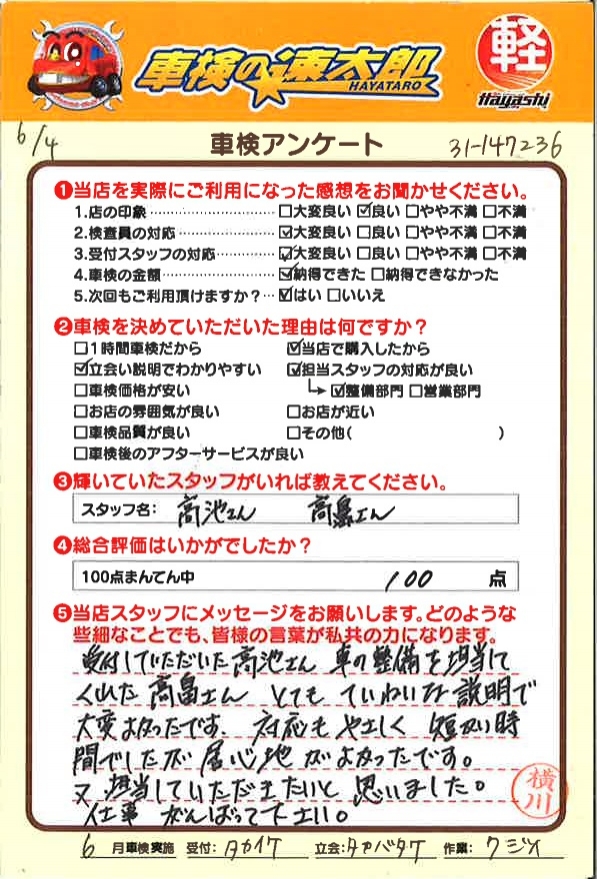 車検の速太郎
HAYATARO
軽
Hayashi
6/4
車検アンケート
31-147236
❶当店を実際にご利用になった感想をお聞かせください。
1.店の印象 □大変良い ☑良い □やや不満 □不満
2.検査員の対応 ☑大変良い □良い □やや不満 □不満
3.受付スタッフの対応 ☑大変良い □良い □やや不満 □不満
4.車検の金額 ☑納得できた □納得できなかった
5.次回もご利用頂けますか? ☑はい □いいえ
❷車検を決めていただいた理由は何ですか?
□1時間車検だから ☑当店で購入したから
☑立会い説明でわかりやすい ☑担当スタッフの対応が良い
□車検価格が安い ↳☑整備部門 □営業部門
□お店の雰囲気が良い □お店が近い
□車検品質が良い □その他( )
□車検後のアフターサービスが良い
❸輝いていたスタッフがいれば教えてください。
スタッフ名: 高池さん 高畠さん
❹総合評価はいかがでしたか?
100点まんてん中 100 点
❺当店スタッフにメッセージをお願いします。どのような
些細なことでも、皆様の言葉が私共の力になります。
受付していただいた高池さん 車の整備を担当して
くれた高畠さん とても ていねいな説明で
大変よかったです。対応も やさしく 短い時
間でしたが 居心地 がよかったです。
又 担当していただきたいと 思いました。
仕事 がんばって下さい。
横川
6 月車検実施 受付: タカイケ 立会: タカバタケ 作業: クジメ